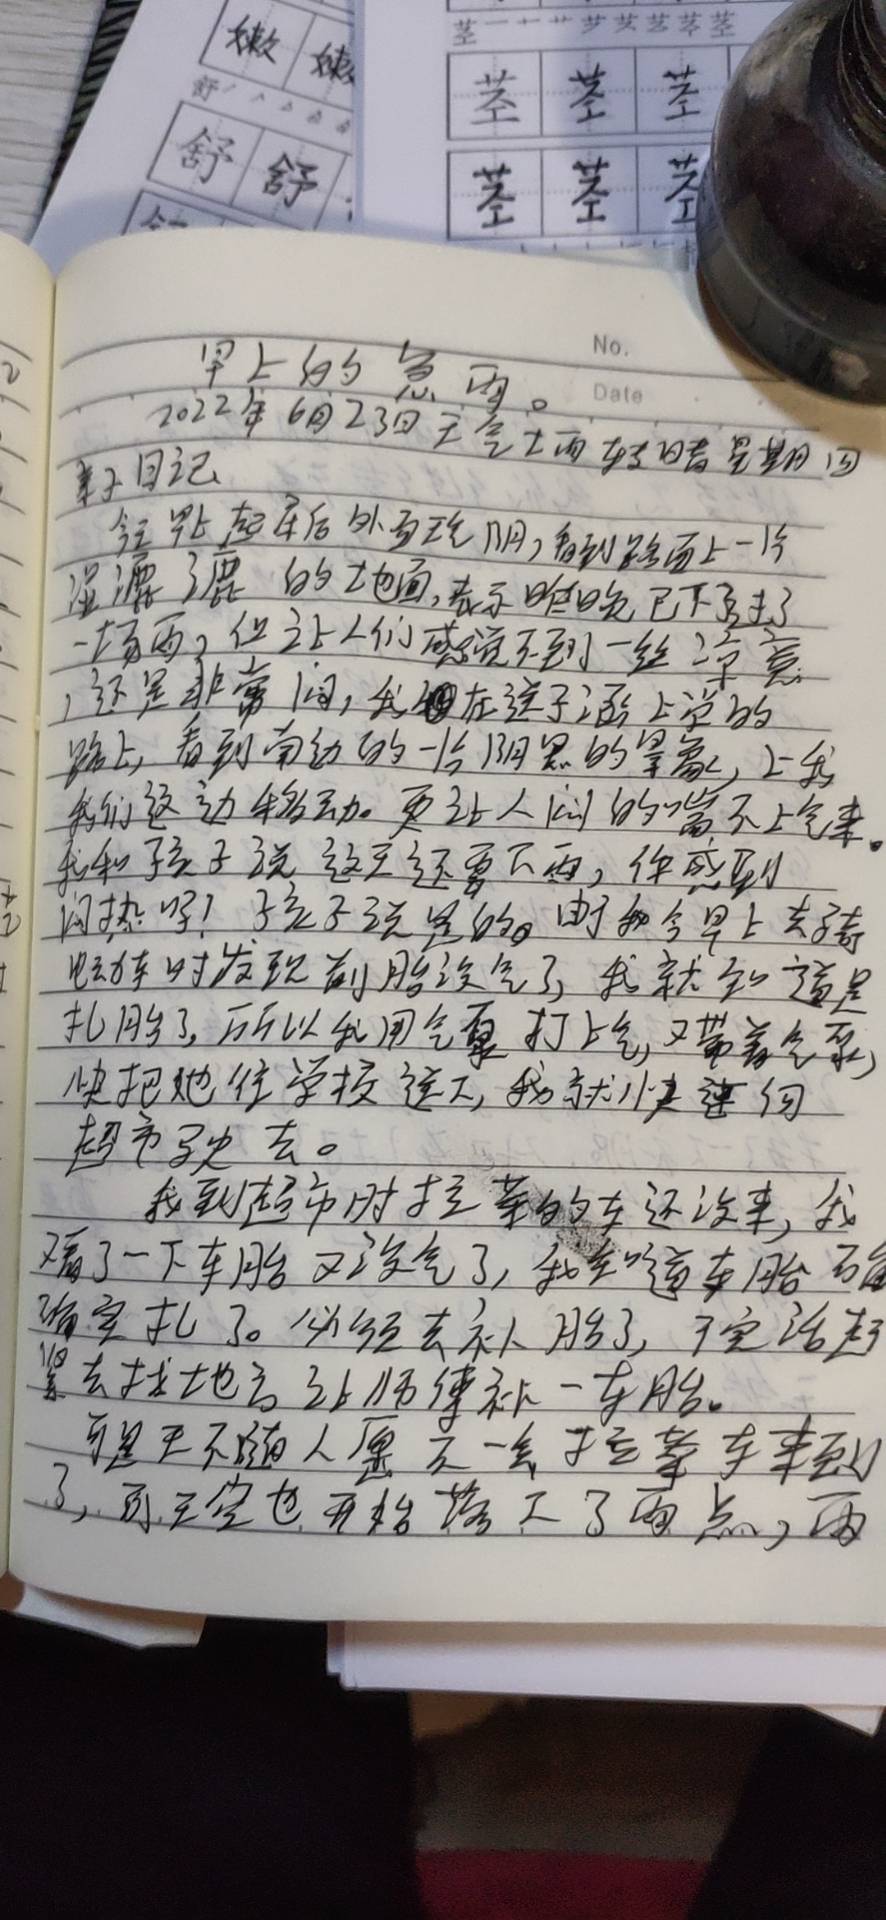 嫩 嫩
舒
舒 舒
茎
茎 茎 茎
茎 茎 茎
No.
Date
早上的急雨。
2022年6月23日 天气大雨转晴 星期四
亲子日记
今天早上起床后外面很阴,看到路面上一片
湿漉漉的地面,表示昨晚已下过了
一场雨,但让人们感觉不到一丝凉意
,还是非常闷,我在送子涵上学的
路上,看到南边的一片阴黑的景象,上我
我们这边移动。更让人闷的喘不上气来。
我和孩子说这天还要下雨,你感到
闷热吗!孩子说是的。由于我今早上去骑
电动车时发现前胎没气了,我就知道是
扎胎了,所以我用气泵打上气,又带着气泵,
快把她往学校送下,我就快速向
超市驶去。
我到超市时拉菜的车还没来,我
又看了一下车胎又没气了,我知道车胎确
确定扎了。必须去补胎了,干完活赶
紧去找地方让师傅补一车胎。
可是天不随人愿不一会拉菜车来到
了,可天空也开始落下了雨点,雨